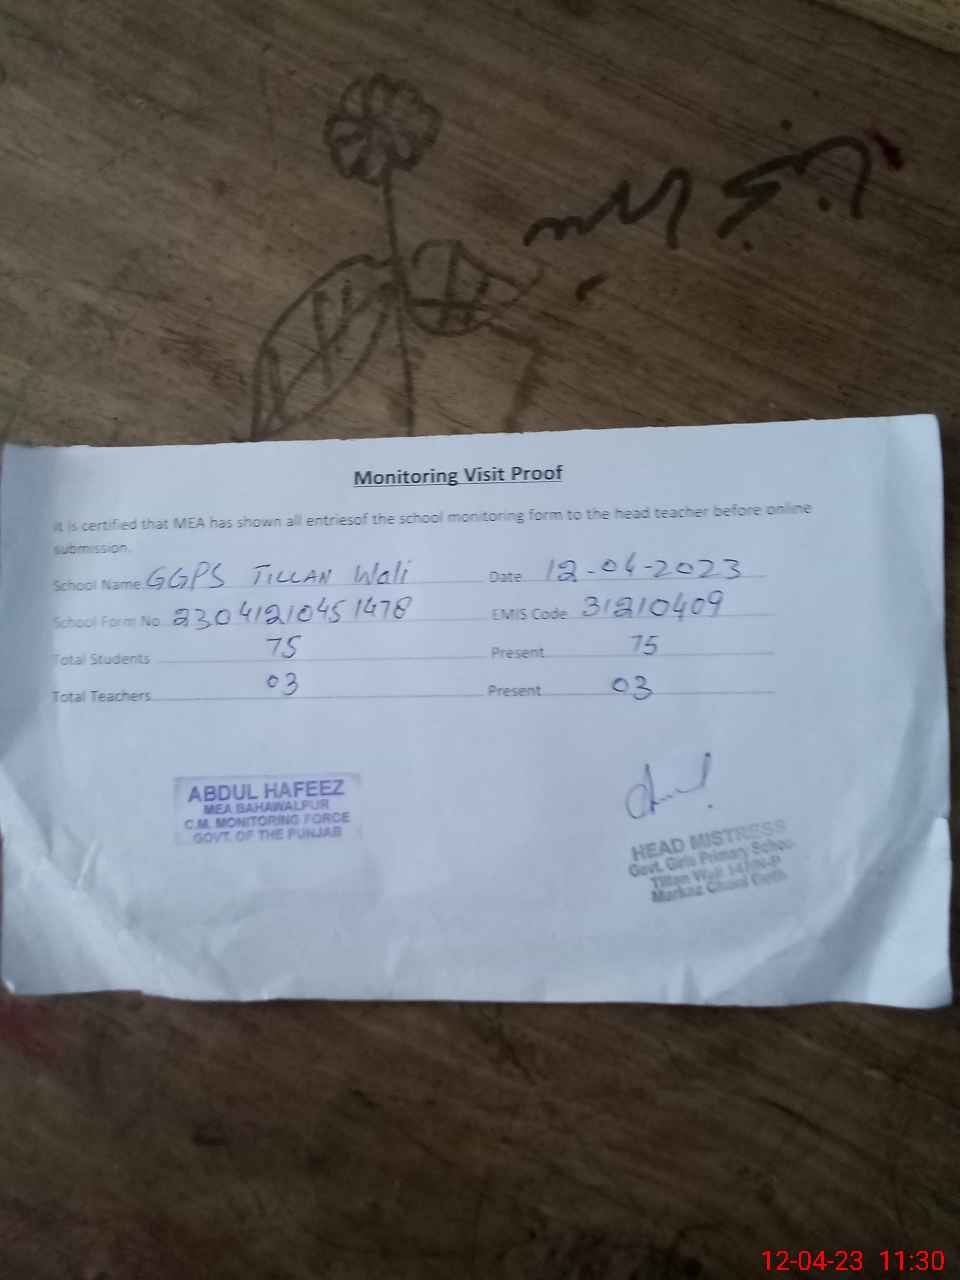 Monitoring Visit Proof
It is certified that MEA has shown all entriesof the school monitoring form to the head teacher before online
submission.
School Name GGPS TILLAN Wali Date 12-04-2023
School Form No. 2304121045 1478 EMIS Code 31210409
Total Students 75 Present 75
Total Teachers 03 Present 03
ABDUL HAFEEZ
MEA BAHAWALPUR
C.M. MONITORING FORCE
GOVT. OF THE PUNJAB
HEAD MISTRESS
Govt. Girls Primary School
Tillan Wali
Markaz
12-04-23 11:30